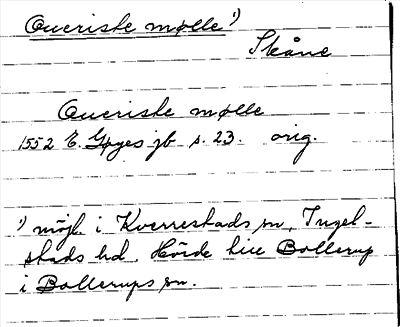 Queriste mølle ¹)
Skåne
Queriste mølle
1552 E. Gøyes jb s. 23. orig.
¹) möjl. i Kverrestads sn, Ingel-
stads hd. Hörde till Bollerup
i Bollerups sn.